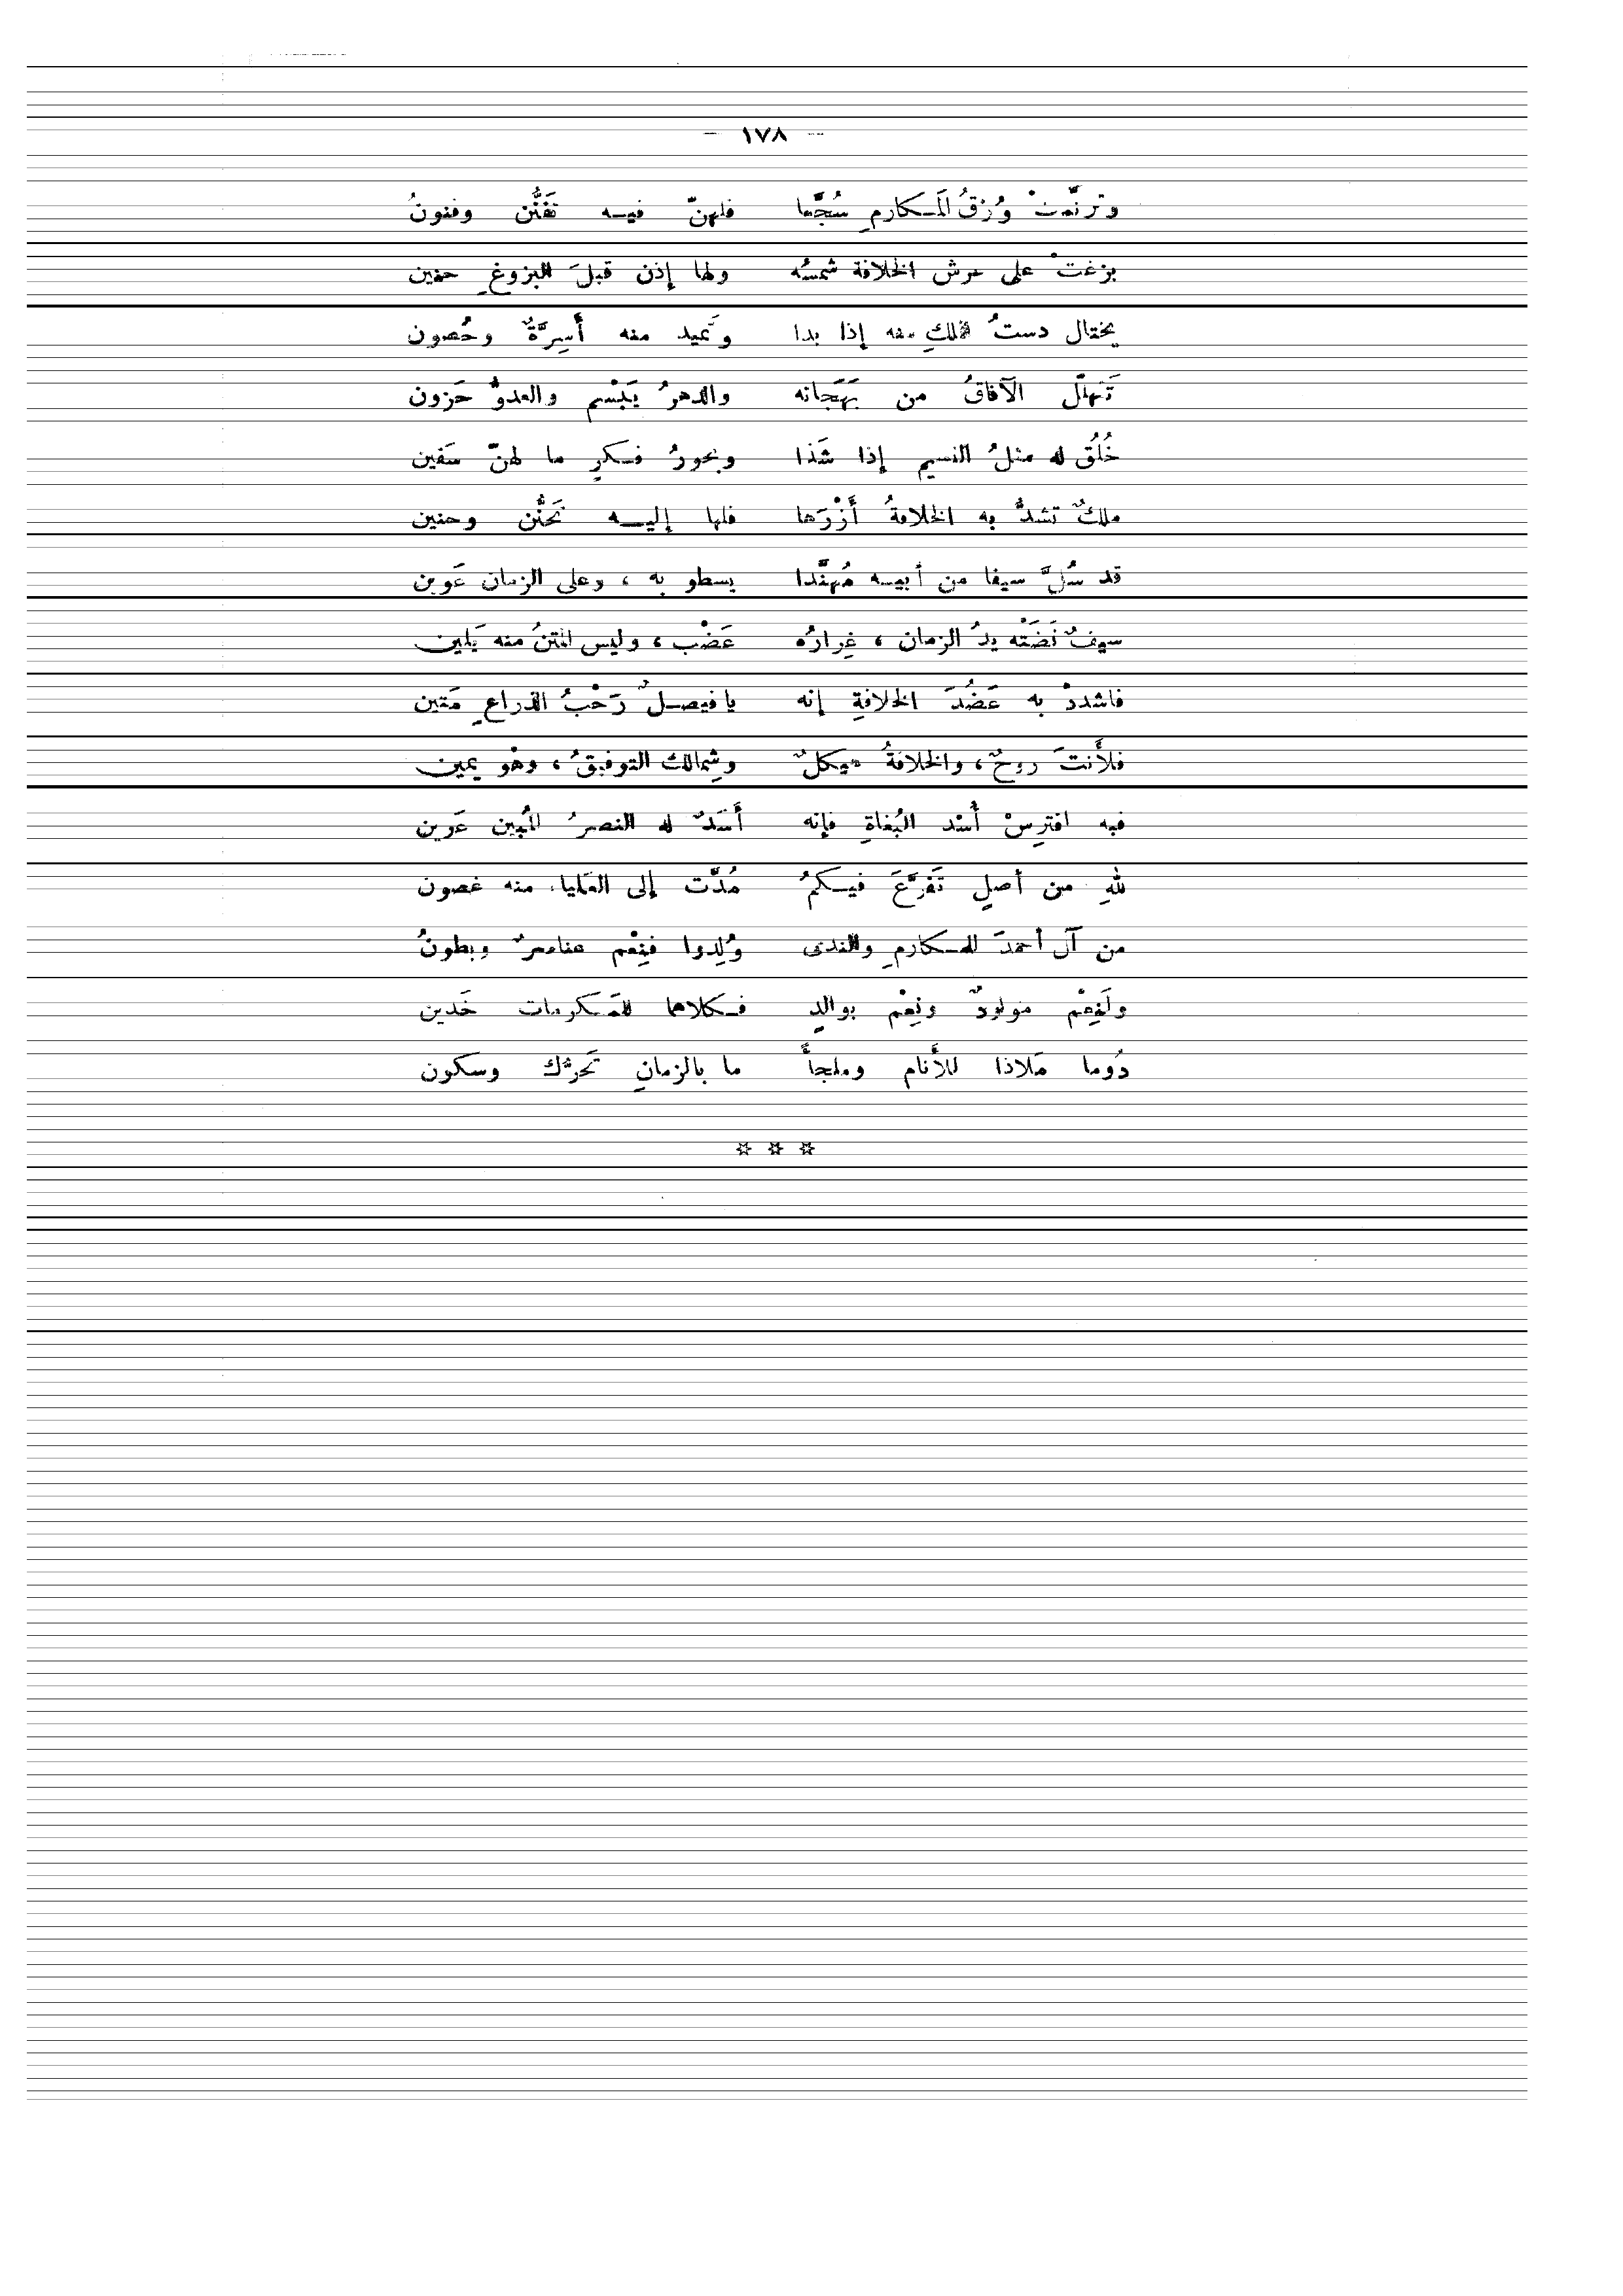 — ١٧٨ —
وترنَّمتْ وُرْقُ المَكارمِ سُجَّما فلهنّ فيه تفَنُّن وفنونُ
بزغتْ على عرش الخلافة شمسُه ولها إذن قبلَ البزوغِ حنين
يختال دستُ الملكِ منه إذا بدا وتَميد منه أَسِرَّةٌ وحُصون
تَهلّل الآفاقُ من بَهَجَاته والدهرُ يَبْسم والعدوُّ حَزون
خُلُق له مثلُ النسيم إذا شَذا وبحورُ فكرٍ ما لهنّ سَفين
ملكٌ تشدُّ به الخلافةُ أَزْرَها فلها إليه تَحنُّن وحنين
قد سُلَّ سيفا من أبيه مُهنَّدا يسطو به ، وعلى الزمان عَوين
سيفٌ نَضَتْه يدُ الزمان ، غِرارُه عَضْب ، وليس المتنُ منه يَلين
فاشددْ به عَضُدَ الخلافةِ إنه يا فيصلٌ رَحْبُ الذراعِ مَتين
فلأَنتَ روحٌ ، والخلافةُ هيكلٌ وشِمالك التوفيقُ ، وهْو يمين
فبه افترِسْ أُسْد البُغاةِ فإنه أَسَدٌ له النصرُ المُبين عَرين
للهِ من أصلٍ تَفرَّعَ فيكمُ مُدَّت إلى العَليا منه غصون
من آل أحمدَ للمكارمِ والندى وُلِدوا فنِعْم عناصرٌ وبطونُ
ولَنِعْم مولودٌ ونِعْم بوالدٍ فكلاهما للمَكرمات خَدين
دُوما مَلاذا للأَنام وملجأً ما بالزمانِ تَحرُّك وسكون
☆ ☆ ☆